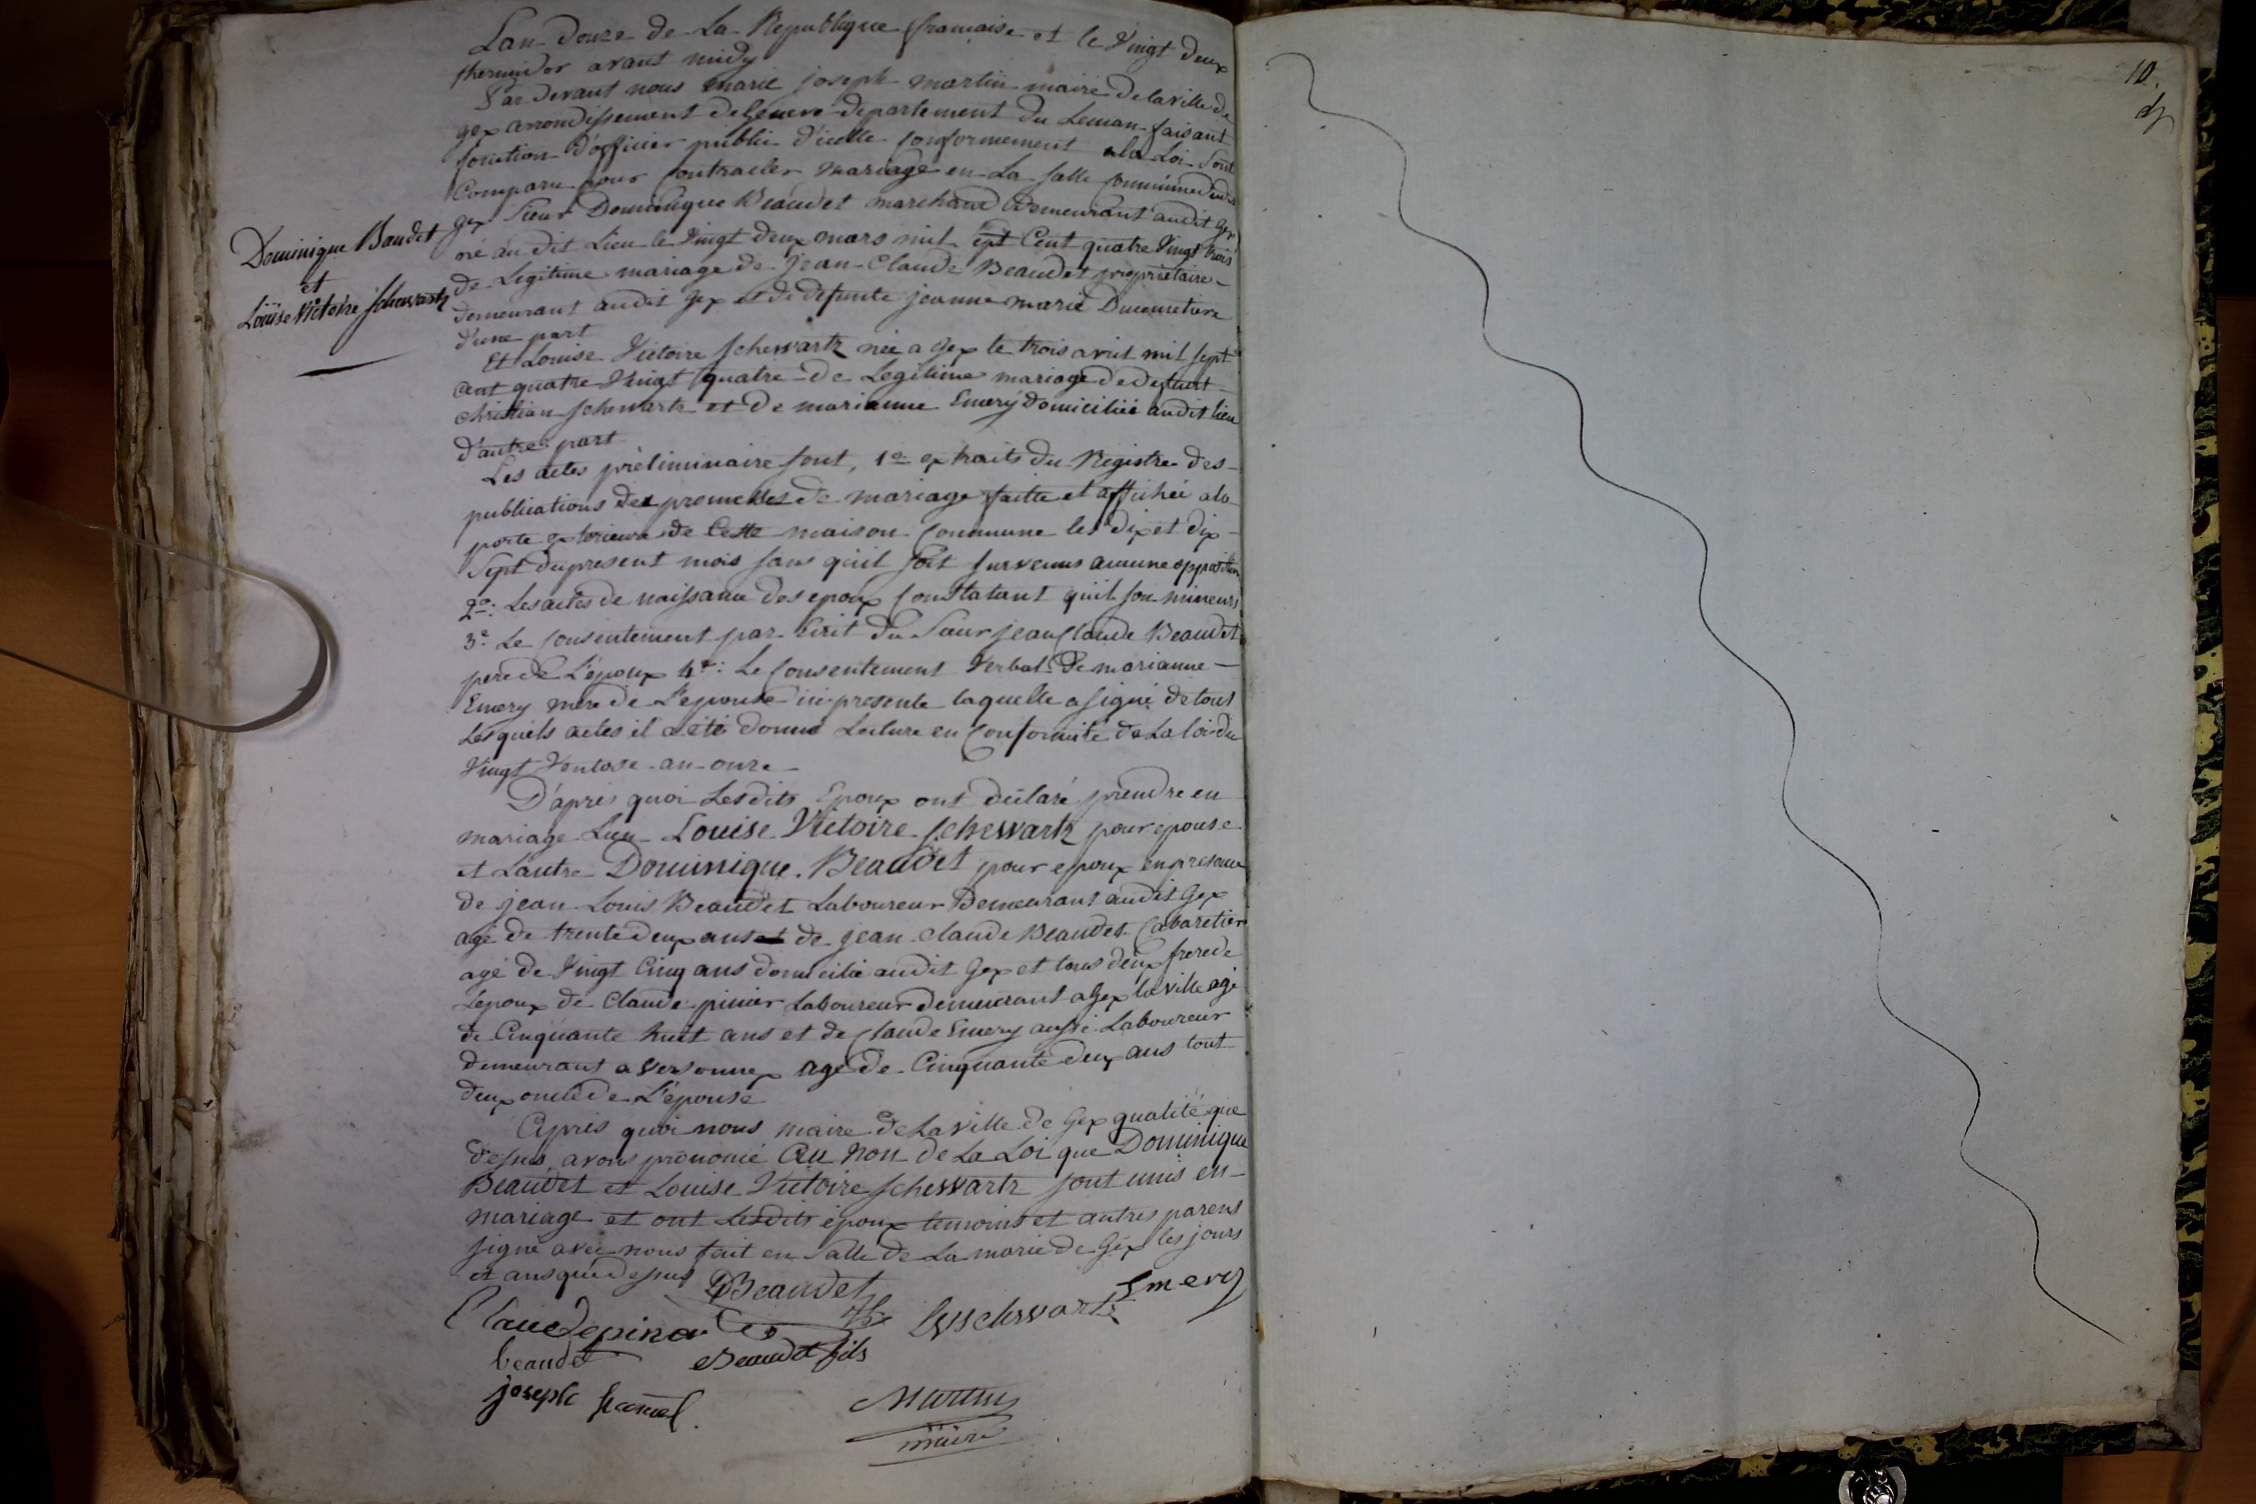 Lan Douze de La Republique francaise et le Vingt deux
thermidor avant midy
Par devant nous marie joseph martin maire de la ville de
gex arrondissement de Geneve departement du Leman faisant
fonction d'officier public d'icelle conformement a la Loi Sont
Comparu pour contracter mariage en La salle commune dudit
gex Sieur Dominique Beaudet marchand demeurant audit gex
né au dit Lieu le Vingt deux mars mil sept Cent quatre Vingt trois
de Legitime mariage de Jean Claude Beaudet proprietaire
demeurant audit gex et de defunte jeanne marie Ducimetiere
d'une part
Dominique Baudet
et
Louise Victoire Schewartz
Et Louise Victoire Schewartz née a gex le trois avril mil sept
cent quatre Vingt quatre de Legitime mariage de defunt
christian Schewartz et de marianne Emery domiciliée audit lieu
d'autre part
Les actes préliminaire sont, 1o extraits du Registre des
publications des promesses de mariage faitte et affichée a la
porte exterieure de Cette maison Commune les dix et dix
Sept du present mois sans qu'il soit survenus aucune opposition
2o: Les actes de naissance des epoux Constatant qu'il son mineurs
3o Le consentement par Ecrit du Sieur jean Claude Beaudet
pere de L'époux 4o: Le Consentement Verbal de marianne
Emery mere de L'epouse ici presente laquelle a signé de tous
Lesquels actes il a été donné Lecture en Conformité de La loi du
Vingt Ventose an onze
D'après quoi Lesdits Epoux ont déclaré prendre en
mariage Lun Louise Victoire Schewartz pour epouse
et L'autre Dominique Beaudet pour epoux en presence
de jean Louis Beaudet Laboureur Demeurant audit Gex
agé de trente deux ans et de jean claude Beaudet Cabaretier
agé de Vingt Cinq ans domicilié audit Gex et tous deux frere de
L'époux de Claude pinier Laboureur demeurant a Gex la ville agé
de Cinquante huit ans et de Claude Emery aussi Laboureur
demeurant a Versonnex agé de Cinquante deux ans tout
deux oncle de L'épouse
Après quoi nous maire de La ville de Gex qualité que
dessus, avons prononcé Au Non de La Loi que Dominique
Beaudet et Louise Victoire Schewartz sont unis en
mariage et ont Lesdits époux temoins et autres parens
signé avec nous fait en Salle de La marie de Gex les jours
et ans que dessus
DBeaudet
Emery
Claude pinar
LVSchwartz
beaudet
Beaudet fils
joseph
Martin
maire
10.